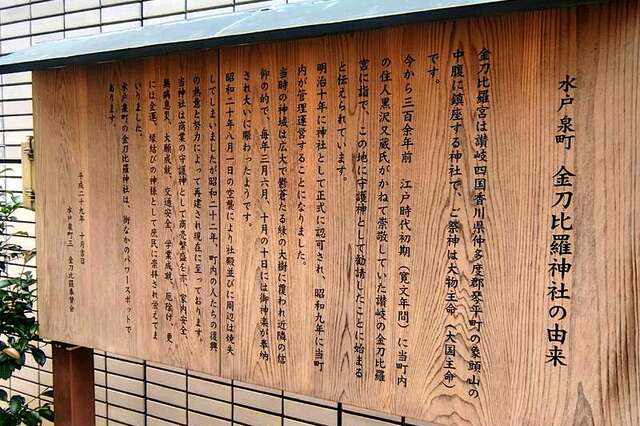 水戸泉町 金刀比羅神社の由来
金刀比羅宮は讃岐四国香川県仲多度郡琴平町の象頭山の
中腹に鎮座する神社で、ご祭神は大物主命（大国主命）
です。
今から三百余年前 江戸時代初期（寛文年間）に当町内
の住人黒沢又蔵氏がかねて崇敬していた讃岐の金刀比羅
宮に詣で、この地に守護神として勧請したことに始まる
と伝えられています。
明治十年に神社として正式に認可され、昭和九年に当町
内が管理運営することになりました。
当時の神域は広大で鬱蒼たる緑の大樹に覆われ近隣の信
仰の的で、毎年三月六月、十月の十日には御神楽が奉納
され大いに賑わったようです。
昭和二十年八月一日の空襲により社殿並びに周辺は焼失
してしまいましたが昭和二十二年、町内の人たちの復興
の熱意と努力によって再建され現在に至っております。
当神社は商業の守護神として商売繁盛を不、家内安全、
無病息災、大願成就、交通安全、学業成就、厄除け、更
には金運、縁結びの神様として庶民に崇拝され栄えてま
いりました。
水戸泉町の金刀比羅神社は、街なかのパワースポットで
あります。
平成二十九年 十月吉日
水戸泉町三 金刀比羅奉賛会